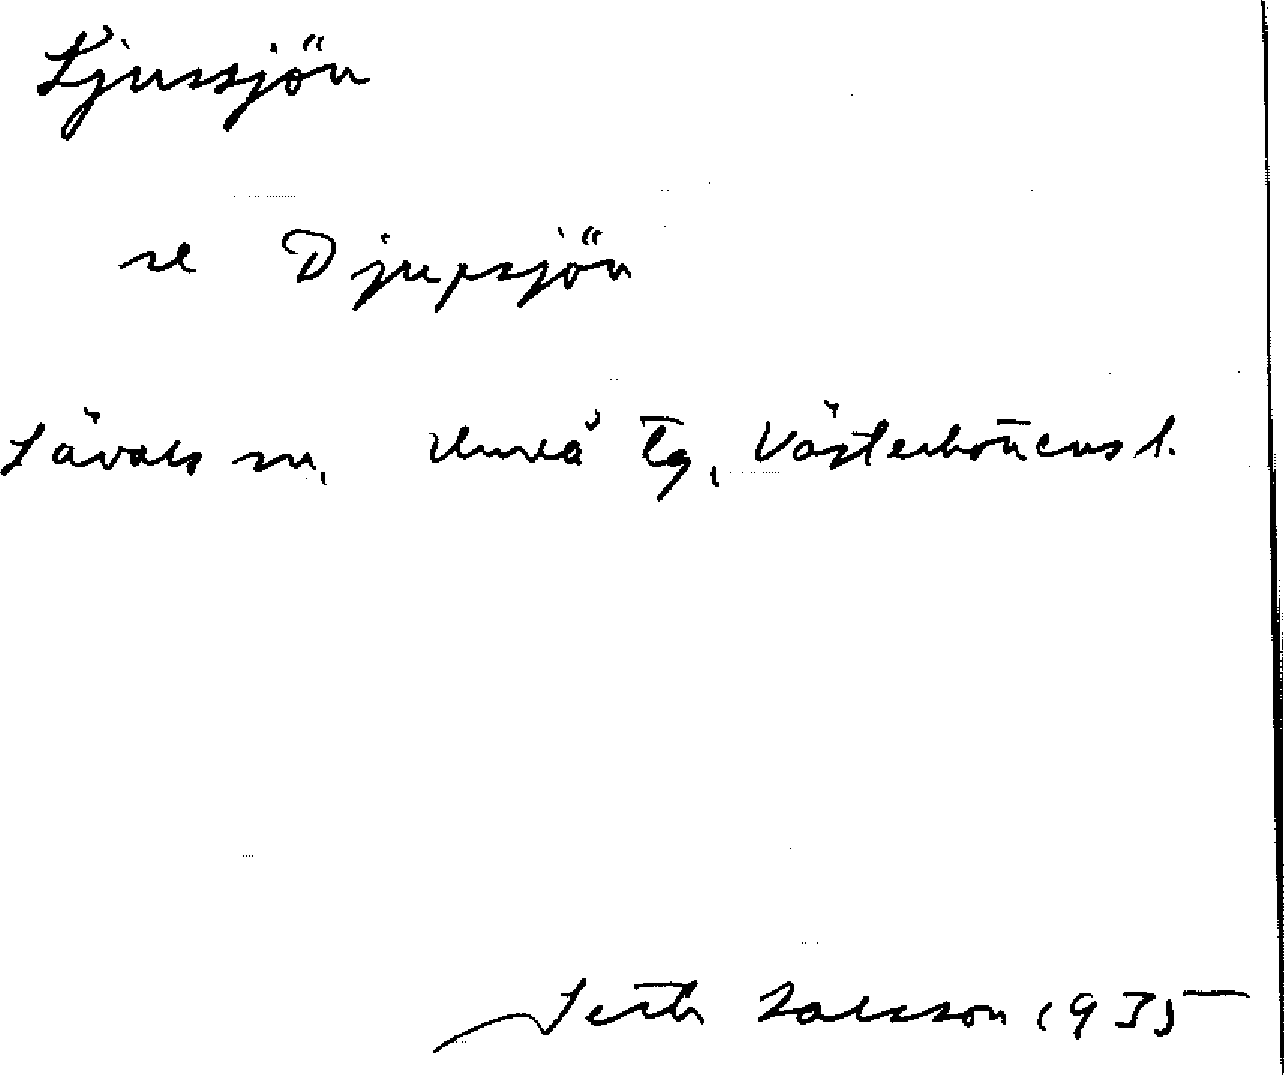 Ljussjön
se Djupsjön
Sävars sn, Umeå tg, Västerbottens l.
Seth Larsson 1935